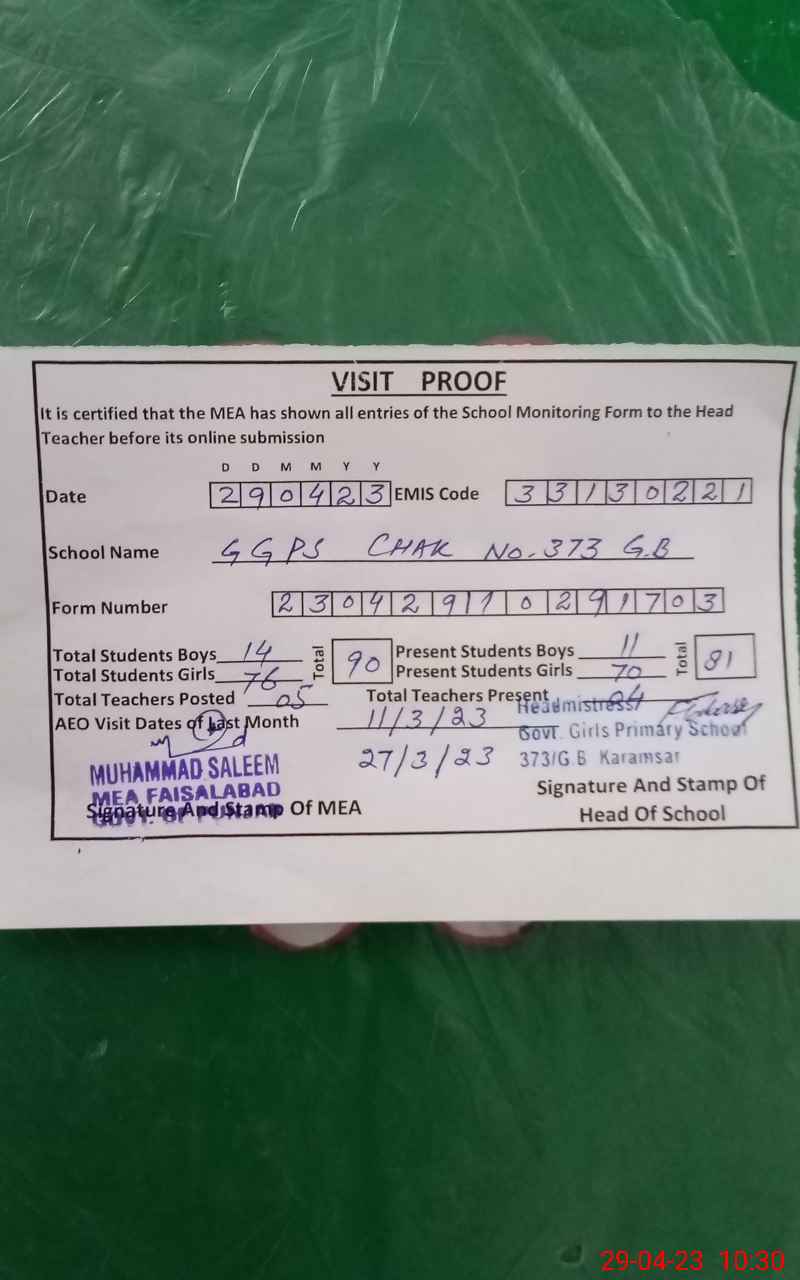 VISIT PROOF
It is certified that the MEA has shown all entries of the School Monitoring Form to the Head
Teacher before its online submission
D D M M Y Y
Date 290423 EMIS Code 33130221
School Name GGPS CHAK No. 373 G.B
Form Number 230429110291703
Total Students Boys 14 Total 90 Present Students Boys 11 Total 81
Total Students Girls 76 Present Students Girls 70
Total Teachers Posted 05 Total Teachers Present 04
AEO Visit Dates of Last Month 11/3/23
27/3/23
Headmistress
Govt. Girls Primary School
373/G.B Karamsar
MUHAMMAD SALEEM
MEA FAISALABAD
GOVT. OF PUNJAB
Signature And Stamp Of MEA
Signature And Stamp Of
Head Of School
29-04-23 10:30